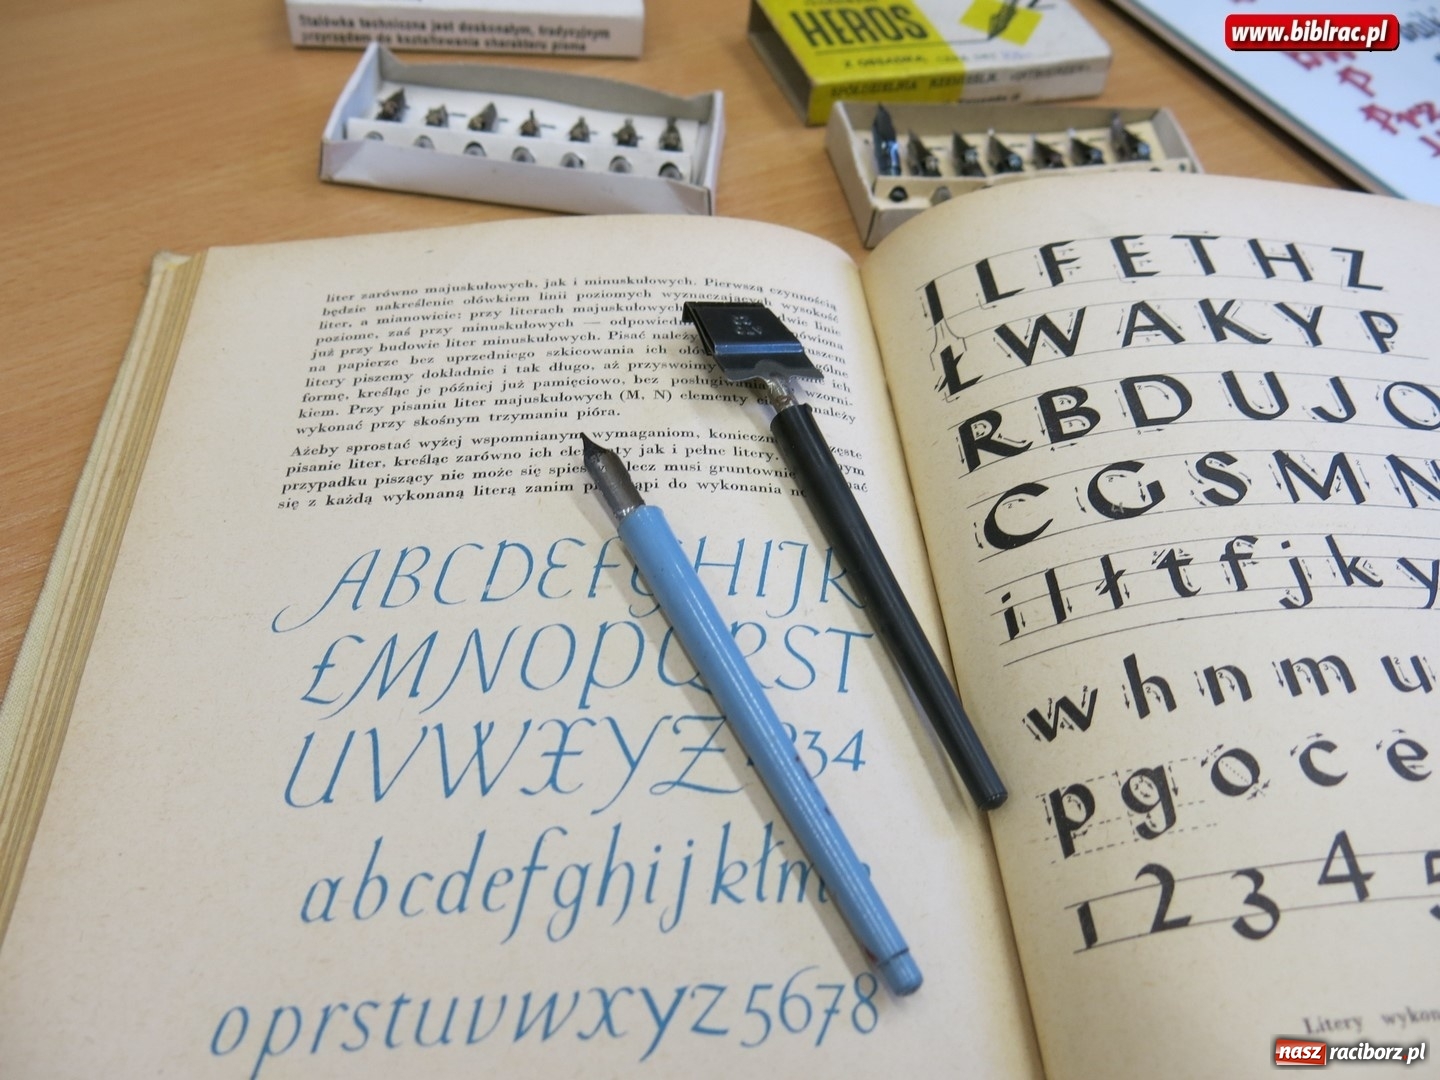 www.biblrac.pl
Stalówka techniczna jest doskonałym, tradycyjnym
przyrządem do kształtowania charakteru pisma
HEROS
Z OBSADKĄ,
SPÓŁDZIELNIA
liter zarówno majuskułowych, jak i minuskułowych. Pierwszą czynnością
będzie nakreślenie ołówkiem linii poziomych wyznaczających wysokość
liter, a mianowicie: przy literach majuskułowych dwie linie
poziome, zaś przy minuskułowych — odpowiedn
już przy budowie liter minuskułowych. Pisać należy
na papierze bez uprzedniego szkicowania ich ołów
litery piszemy dokładnie i tak długo, aż przyswoimy
formę, kreśląc je później już pamięciowo, bez posługiwania ich wzorni-
kiem. Przy pisaniu liter majuskułowych (M, N) elementy należy
wykonać przy skośnym trzymaniu pióra.
Ażeby sprostać wyżej wspomnianym wymaganiom, konieczn
pisanie liter, kreśląc zarówno ich elementy jak i pełne litery.
przypadku piszący nie może się spiesz lecz musi gruntownie
się z każdą wykonaną literą zanim przystąpi do wykonania
ABCDEFGHIJK
ŁMNOPQRST
UVWXYZ 234
abcdefghijkłm
oprstuvwxyz5678
ILFETHZ
ŁWAKYP
RBDUJO
CGSMN
ilłtfjky
whnmu
pgoce
12345
Litery wykon
nasz raciborz.pl